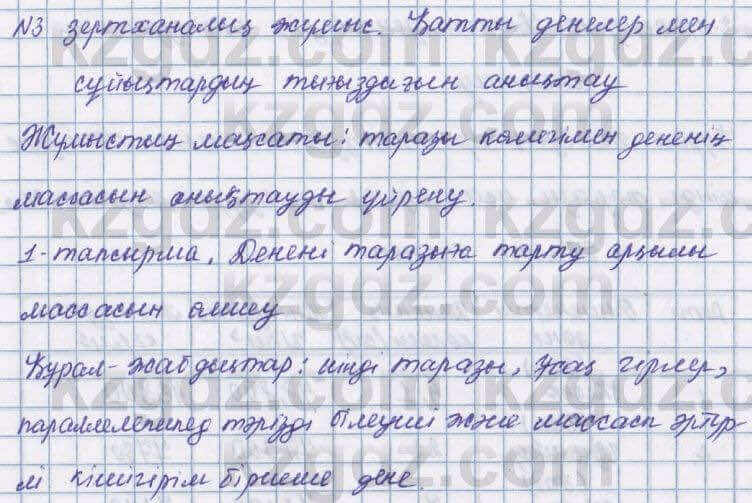 №3 зертханалық жұмыс. Қатты денелер мен
сұйықтардың тығыздығын анықтау
Жұмыстың мақсаты: таразы көмегімен дененің
массасын анықтауды үйрену.
1-тапсырма. Денені таразыға тарту арқылы
массасын өлшеу
Құрал-жабдықтар: иінді таразы, ұсақ гірлер,
параллелепипед тәрізді білеуші және массасы әртүр-
лі кішігірім бірнеше дене.
kzgdz.com